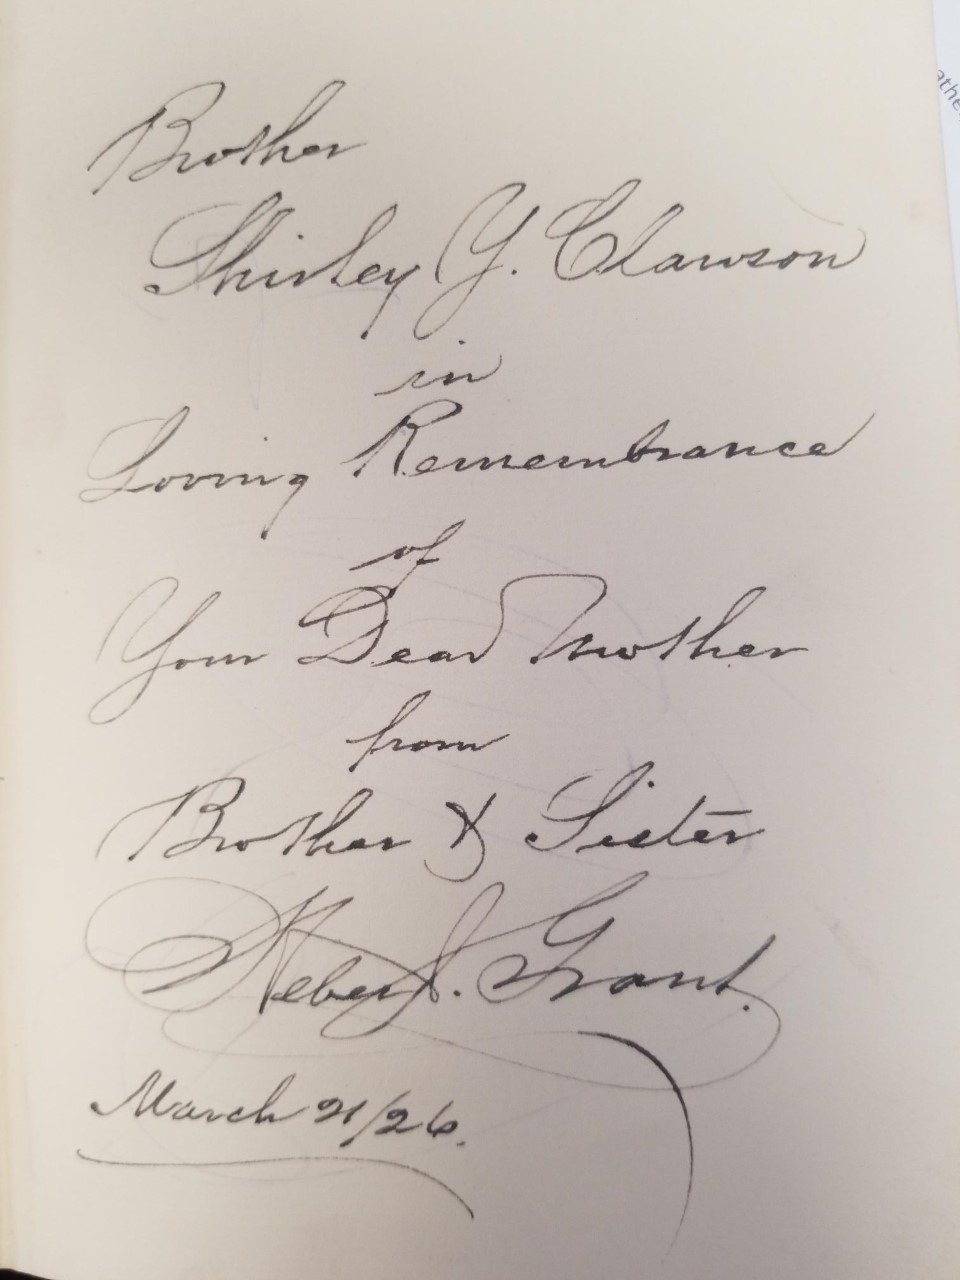 Brother
Shirley Y. Clawson
in
Loving Remembrance
of
Your Dear Mother
from
Brother & Sister
Heber J. Grant.
March 21/26.